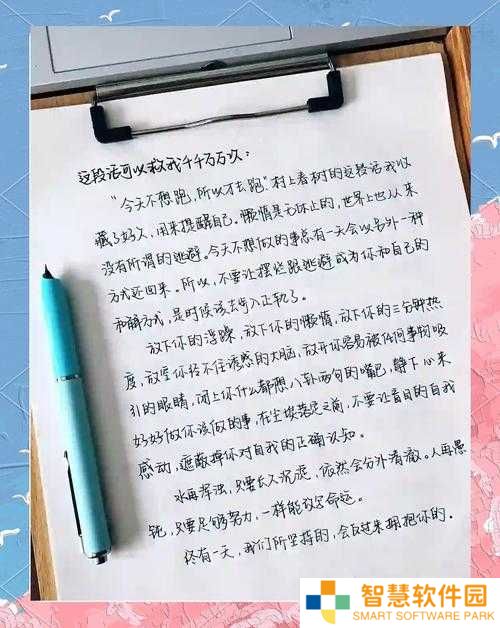 这段话可以救我千千万万次:
"今天不想跑,所以才去跑"村上春树的这段话我收
藏了好久,用来提醒自己。懒惰是无休止的,世界上也从来
没有所谓的逃避。今天不想做的事总有一天会以另外一种
方式还回来。所以,不要让摆烂跟逃避成为你和自己的
和解方式,是时候该去步入正轨了。
放下你的浮躁,放下你的懒惰,放下你的三分钟热
度,放空你经不住诱惑的大脑,放开你容易被任何事物吸
引的眼睛,闭上你什么都想八卦两句的嘴巴,静下心来
好好做你该做的事,在尘埃落定之前,不要让盲目的自我
感动,遮蔽掉你对自我的正确认知。
水再浑浊,只要长久沉淀,依然会分外清澈。人再愚
钝,只要足够努力,一样能改写命运。
终有一天,我们所坚持的,会反过来拥抱你的。
智慧软件园
SMART SOFTWARE PARK